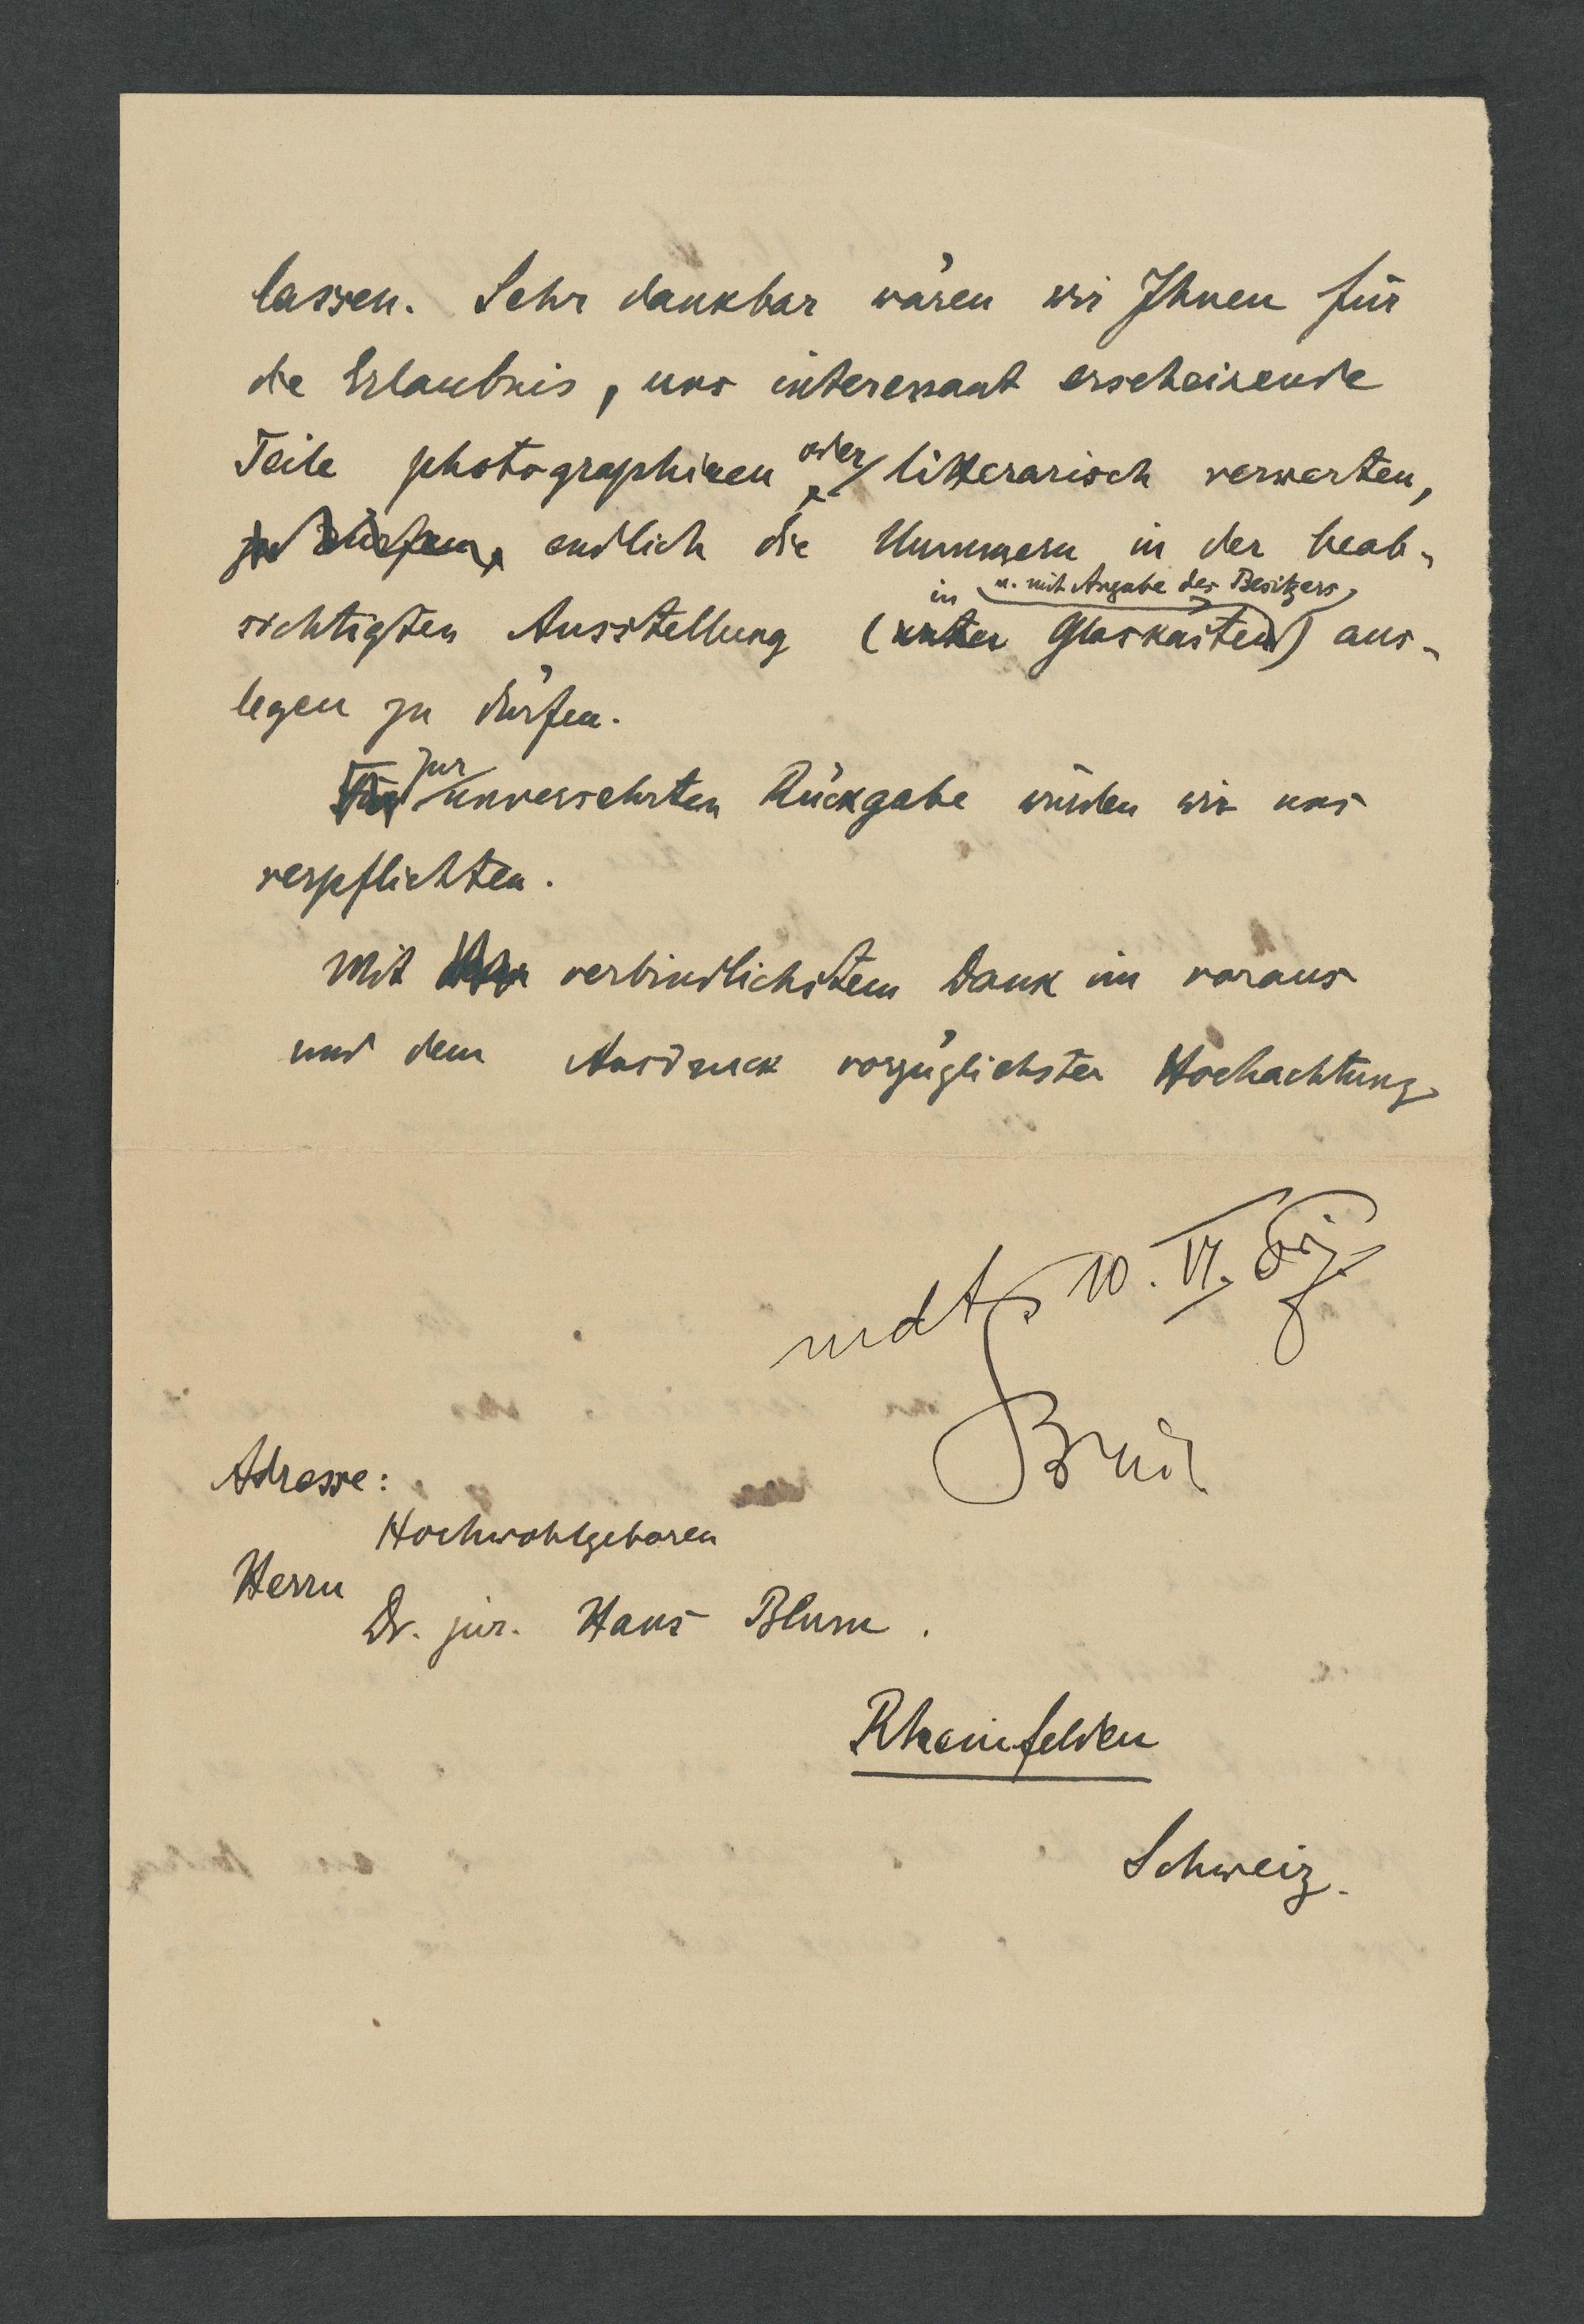 lassen. Sehr dankbar wären wir Ihnen für
die Erlaubnis, uns interessant erscheinende
Teile photographieren oder litterarisch verwerten,
zu dürfen, endlich die Nummern in der beab-
in u. mit Angabe des Besitzers
sichtigten Ausstellung (unter Glaskästen) aus-
legen zu dürfen.
zur
Für unversehrten Rückgabe würden wir uns
verpflichten.
Mit verbindlichstem Dank im voraus
und dem Ausdruck vorzüglichster Hochachtung
mdt 10. VI.
Adresse:
Hochwohlgeboren
Herrn
Dr. jur. Hans Blum.
Rheinfelden
Schweiz.